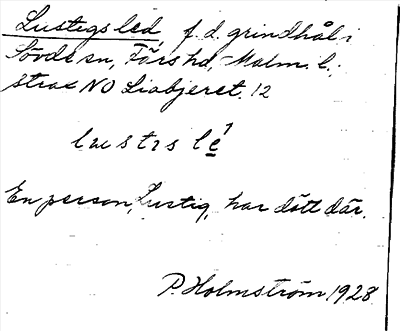 Lustigsled f.d. grindhål i
Sövde sn, Färs hd, Malm. l.,
strax NO Liabjeret. 12
lustis le
En person, Lustig, har dött där.
P. Holmström 1928